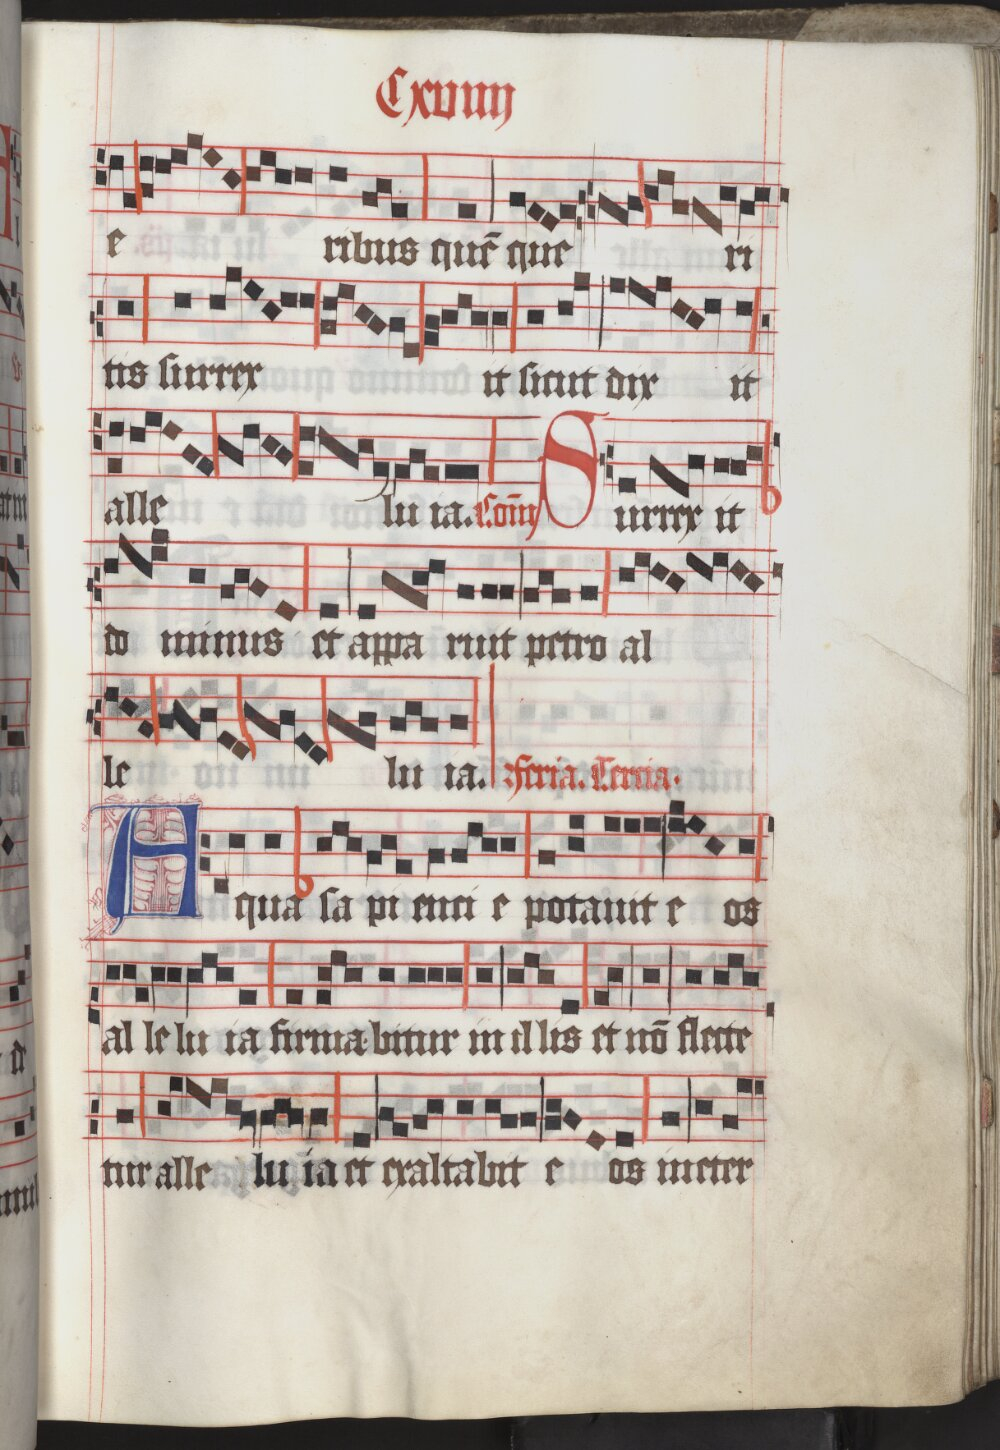 Cxviiij
e ribus quē que ri
tis surrex it sicut dix it
alle lu ia. Cōm̄ Surrex it
do minus et appa ruit petro al
le lu ia. Feria. Tercia.
Aqua sa pi enci e potauit e os
al le lu ia firma bitur in il lis et nō flecte
tur alle lu ia et exaltabit e os in eter